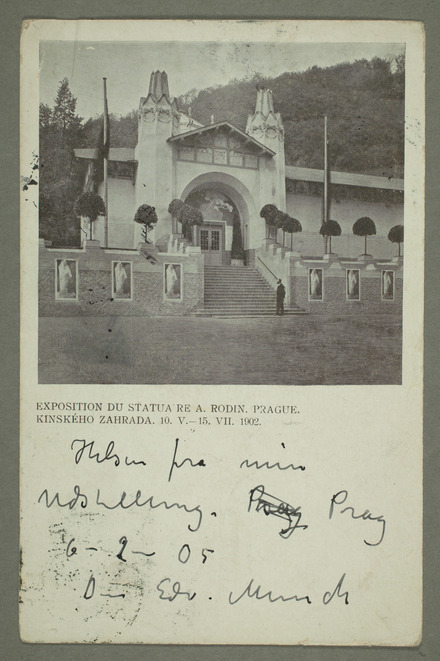 EXPOSITION DU STATUAIRE A. RODIN. PRAGUE.
KINSKÉHO ZAHRADA. 10. V.—15. VII. 1902.
Hilsen fra min
Udstilling. Prag Prag
6–2– 05
Din Edv. Munch